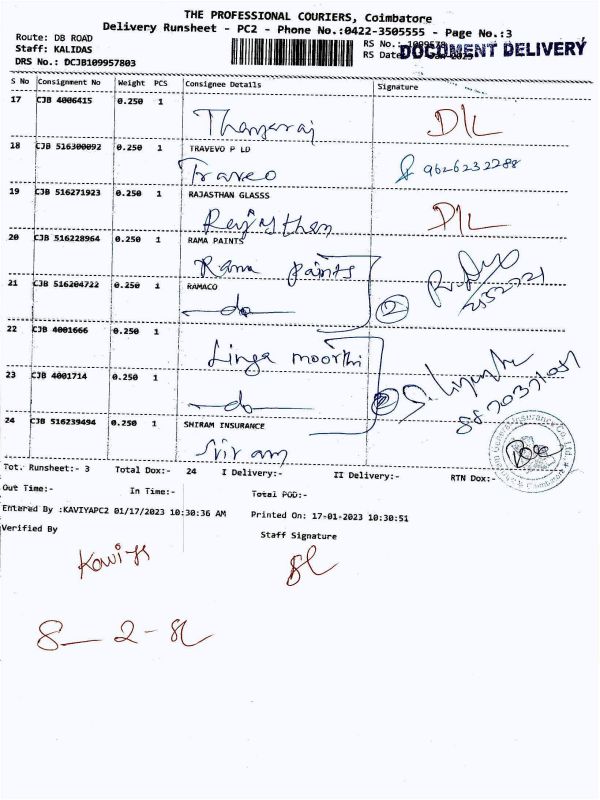 THE PROFESSIONAL COURIERS, Coimbatore
Delivery Runsheet - PC2 - Phone No.:0422-3505555 - Page No.:3
Route: DB ROAD
RS No.:
DOCUMENT DELIVERY
Staff: KALIDAS
RS Date
DRS No.: DCJB109957803
S No Consignment No Weight PCS Consignee Details Signature
17 CJB 4006415 0.250 1
Thangaraj D/L
18 CJB 516300092 0.250 1 TRAVEVO P LD
Traveo 9626232288
19 CJB 516271923 0.250 1 RAJASTHAN GLASSS
Rajasthan D/L
20 CJB 516228964 0.250 1 RAMA PAINTS
Rama paints
21 CJB 516204722 0.250 1 RAMACO
do 2
22 CJB 4001666 0.250 1
Linga moorthi
23 CJB 4001714 0.250 1
do 2
24 CJB 516239494 0.250 1 SHIRAM INSURANCE
Sriram
Tot. Runsheet:- 3 Total Dox:- 24 I Delivery:- II Delivery:- RTN Dox:-
Out Time:- In Time:- Total POD:-
Entered By :KAVIYAPC2 01/17/2023 10:30:36 AM Printed On: 17-01-2023 10:30:51
Verified By Staff Signature